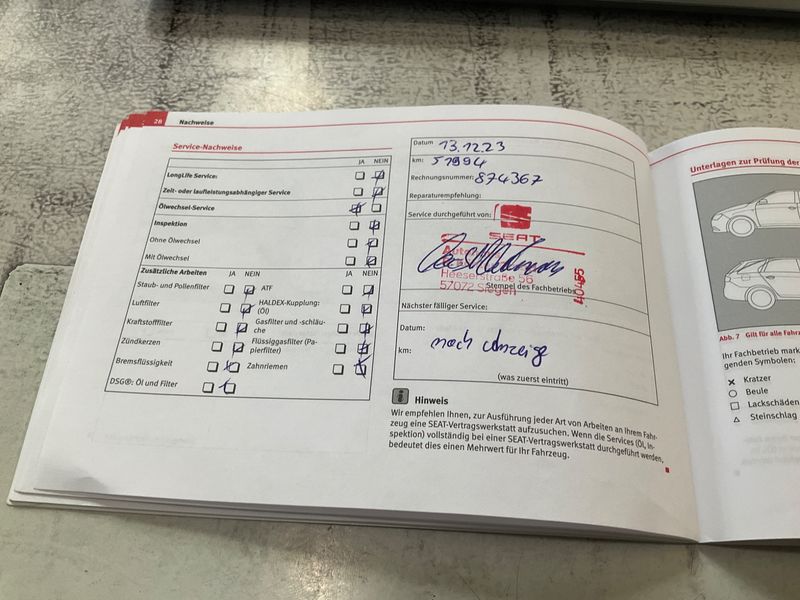 28 Nachweise
Service-Nachweise
JA NEIN
LongLife Service:
Zeit- oder laufleistungsabhängiger Service
Ölwechsel-Service
Inspektion
Ohne Ölwechsel
Mit Ölwechsel
Zusätzliche Arbeiten JA NEIN JA NEIN
Staub- und Pollenfilter ATF
Luftfilter HALDEX-Kupplung:
(Öl)
Kraftstofffilter Gasfilter und -schläu-
che
Zündkerzen Flüssiggasfilter (Pa-
pierfilter)
Bremsflüssigkeit Zahnriemen
DSG®: Öl und Filter
Datum 13.12.23
km: 51994
Rechnungsnummer: 874367
Reparaturempfehlung:
Service durchgeführt von:
SEAT
Heeserstraße 56
57072 Siegen
Stempel des Fachbetriebs
40465
Nächster fälliger Service:
Datum:
km: nach Anzeige
(was zuerst eintritt)
i Hinweis
Wir empfehlen Ihnen, zur Ausführung jeder Art von Arbeiten an Ihrem Fahr-
zeug eine SEAT-Vertragswerkstatt aufzusuchen. Wenn die Services (Öl, In-
spektion) vollständig bei einer SEAT-Vertragswerkstatt durchgeführt werden,
bedeutet dies einen Mehrwert für Ihr Fahrzeug.
Unterlagen zur Prüfung der
Abb. 7 Gilt für alle Fahrz
Ihr Fachbetrieb mark
genden Symbolen:
Kratzer
Beule
Lackschäden
Steinschlag